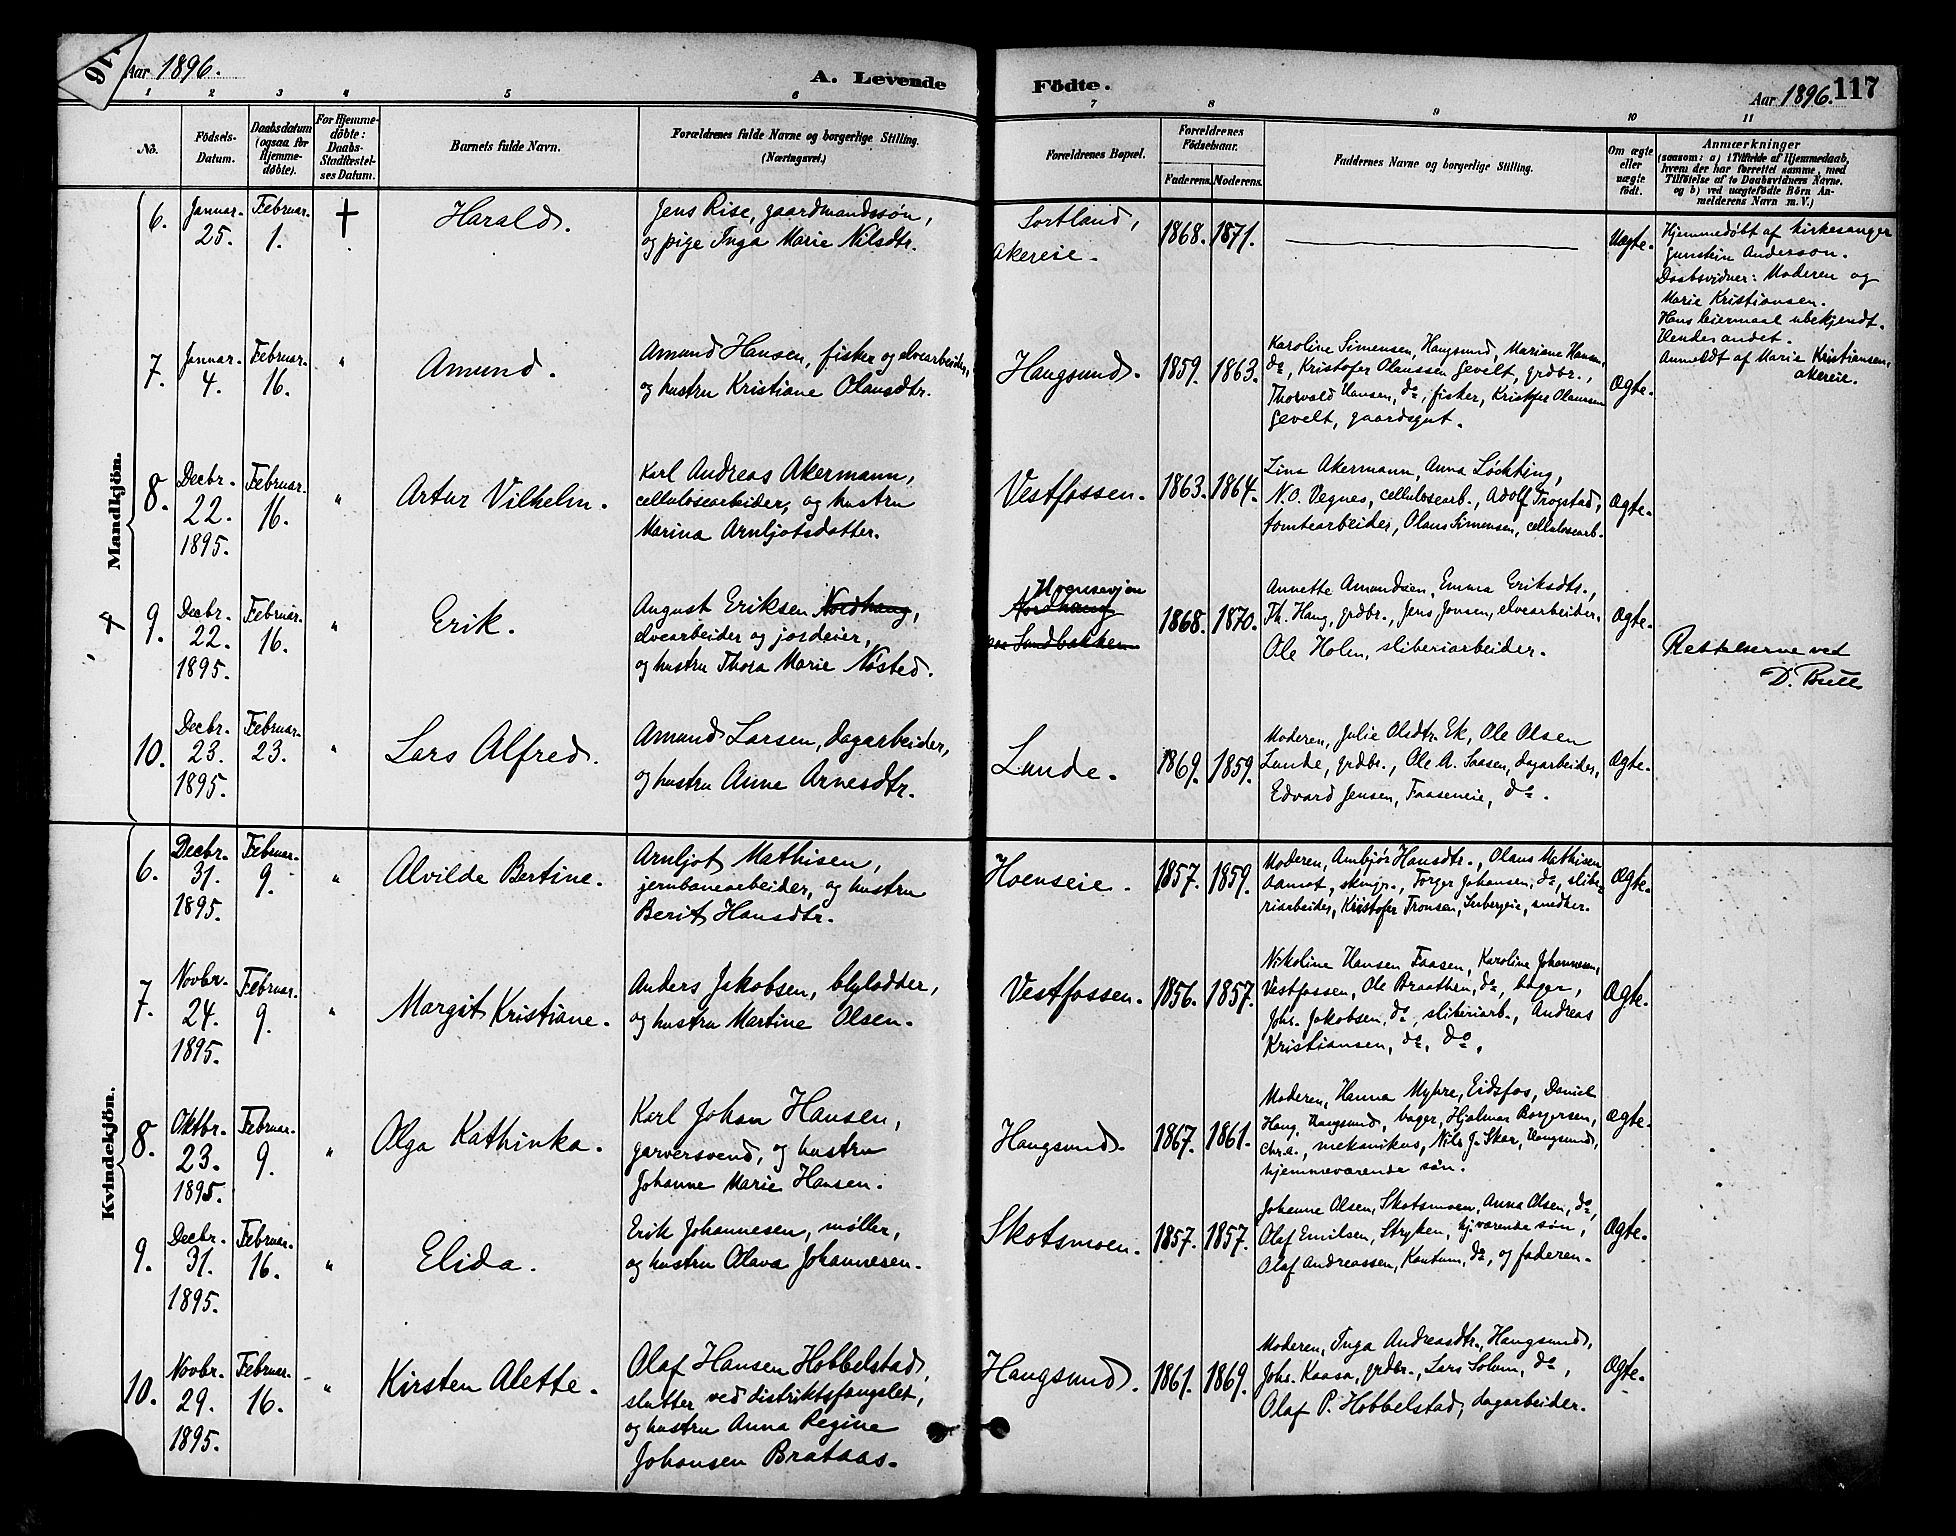 Aar 1896.
A. Levende
Födte.
Aar 1896.
117
1 2 3 4 5 6
7 8 9 10 11
No.
Födsels-Datum.
Daabsdatum (ogsaa for Hjemme-döbte).
For Hjemme-döbte: Daabs-Stadfæstel-ses Datum.
Barnets fulde Navn.
Forældrenes fulde Navne og borgerlige Stilling. (Næringsvei.)
Forældrenes Bopæl.
Forældrenes Födselsaar.
Faderens. Moderens.
Faddernes Navne og borgerlige Stilling.
Om ægte eller uægte födt.
Anmærkninger
(saasom: a) i Tilfælde af Hjemmedaab, hvem der har forrettet samme, med Tilföielse af to Daabsvidners Navne, og b) ved uægtefödte Börn An-melderens Navn m. V.)
Mandkjön.
6.
Januar. 25.
Februar. 1.
†
Harald.
Jens Rise, gaardmandssøn,
og pige Inga Marie Nilsdtr.
Sortland,
Akereie.
1868. 1871.
Uægte.
Hjemmedøbt af kirkesanger
Gunstein Anderson.
Daabsvidner: Moderen og
Marie Kristiansen.
Hans leiermaal ubekjendt.
Hendes andet.
Anmeldt af Marie Kristiansen,
Akereie.
7.
Januar. 4.
Februar. 16.
"
Amund.
Amund Hansen, fisker og elvearbeider,
og hustru Kristiane Olausdtr.
Haugsund.
1859. 1863.
Karoline Simensen, Haugsund, Mariane Hansen,
do, Kristofer Olaussen Gevelt, grdbr.,
Thorvald Hansen, do, fisker, Kristofer Olaussen
Gevelt, gaardsgut.
Ægte.
8.
Decbr. 22. 1895.
Februar. 16.
"
Artur Vilhelm.
Karl Andreas Akermann,
cellulosearbeider, og hustru
Marina Arnljotsdatter.
Vestfossen.
1863. 1864.
Lina Akermann, Anna Løchting,
N.O. Vegnes, cellulosearb., Adolf Trogstad,
tomtearbeider, Olaus Simensen, cellulosearb.
Ægte.
9.
Decbr. 22. 1895.
Februar. 16.
"
Erik.
August Eriksen Nordhaug,
elvearbeider og jordeier,
og hustru Thora Marie Nøsted.
Nordhaug
Sandbakken
1868. 1870.
Annette Amundsen, Emma Eriksdtr.,
Th. Haug, grdbr., Jens Jensen, elvearbeider,
Ole Holm, sliberiarbeider.
Ægte.
Rettelserne ved
D. Bull
10.
Decbr. 23. 1895.
Februar. 23.
"
Lars Alfred.
Amund Larsen, dagarbeider,
og hustru Anne Arnesdtr.
Lunde.
1869. 1859.
Moderen, Julie Olsdtr. Ek, Ole Olsen
Lunde, grdbr., Ole A. Saasen, dagarbeider,
Edvard Jensen, Faaseneie, do.
Ægte.
Kvindekjön.
6.
Decbr. 31. 1895.
Februar. 9.
"
Alvilde Bertine.
Arnljot Mathisen,
jernbanearbeider, og hustru
Berit Hansdtr.
Hoenseie.
1857. 1859.
Moderen, Ambjør Hansdtr., Olaus Mathisen
Aamot, Torger Johansen, do, slibe-
riarbeider, Kristofer Tronsen, snedker.
Ægte.
7.
Novbr. 24. 1895.
Februar. 9.
"
Margit Kristiane.
Anders Jakobsen, blylodder,
og hustru Martine Olsen.
Vestfossen.
1856. 1857.
Nikoline Hansen Faasen, Karoline Johannesen,
Vestfossen, Ole Braathen, do, bager,
Johs. Jakobsen, do, sliberiarb., Andreas
Kristiansen, do, do,
Ægte.
8.
Oktbr. 23. 1895.
Februar. 9.
"
Olga Kathinka.
Karl Johan Hansen,
garversvend, og hustru
Johanne Marie Hansen.
Haugsund.
1867. 1861.
Moderen, Hanna Myhre, Eidsfos, Daniel
Haug, Haugsund, bager, Hjalmar Borgersen,
Chr.a., mekanikus, Nils J. Skar, Haugsund,
hjemmeværende søn.
Ægte.
9.
Decbr. 31. 1895.
Februar. 16.
"
Elida.
Erik Johannesen, møller,
og hustru Olava Johannesen.
Skotsmoen.
1857. 1857.
Johanne Olsen, Skotsmoen, Anna Olsen, do,
Olaf Emilsen, Stryken, hj.værende søn,
Olaf Andreassen, Kantum, do, og faderen.
Ægte.
10.
Novbr. 29. 1895.
Februar. 16.
"
Kirsten Alette.
Olaf Hansen Hobbelstad,
slutter ved distriktsfængslet,
og hustru Anna Regine
Johansen Brataas.
Haugsund.
1861. 1869.
Moderen, Inga Andreasdtr., Haugsund,
Johs. Kaasa, grdbr., Lars Solum, do,
Olaf P. Hobbelstad, dagarbeider.
Ægte.